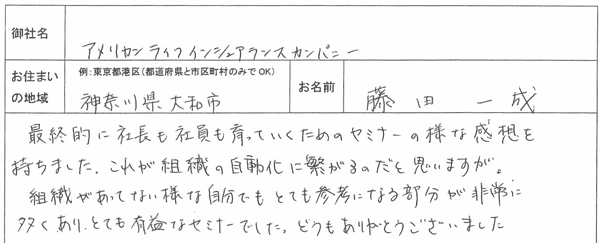 御社名
アメリカンライフインシュアランスカンパニー
お住まいの地域
例:東京都港区(都道府県と市区町村のみでOK)
神奈川県大和市
お名前
藤田一成
最終的に社長も社員も育っていくためのセミナーの様な感想を
持ちました。これが組織の自動化に繋がるのだと思いますが。
組織があってない様な自分でもとても参考になる部分が非常に
多くあり、とても有益なセミナーでした。どうもありがとうございました